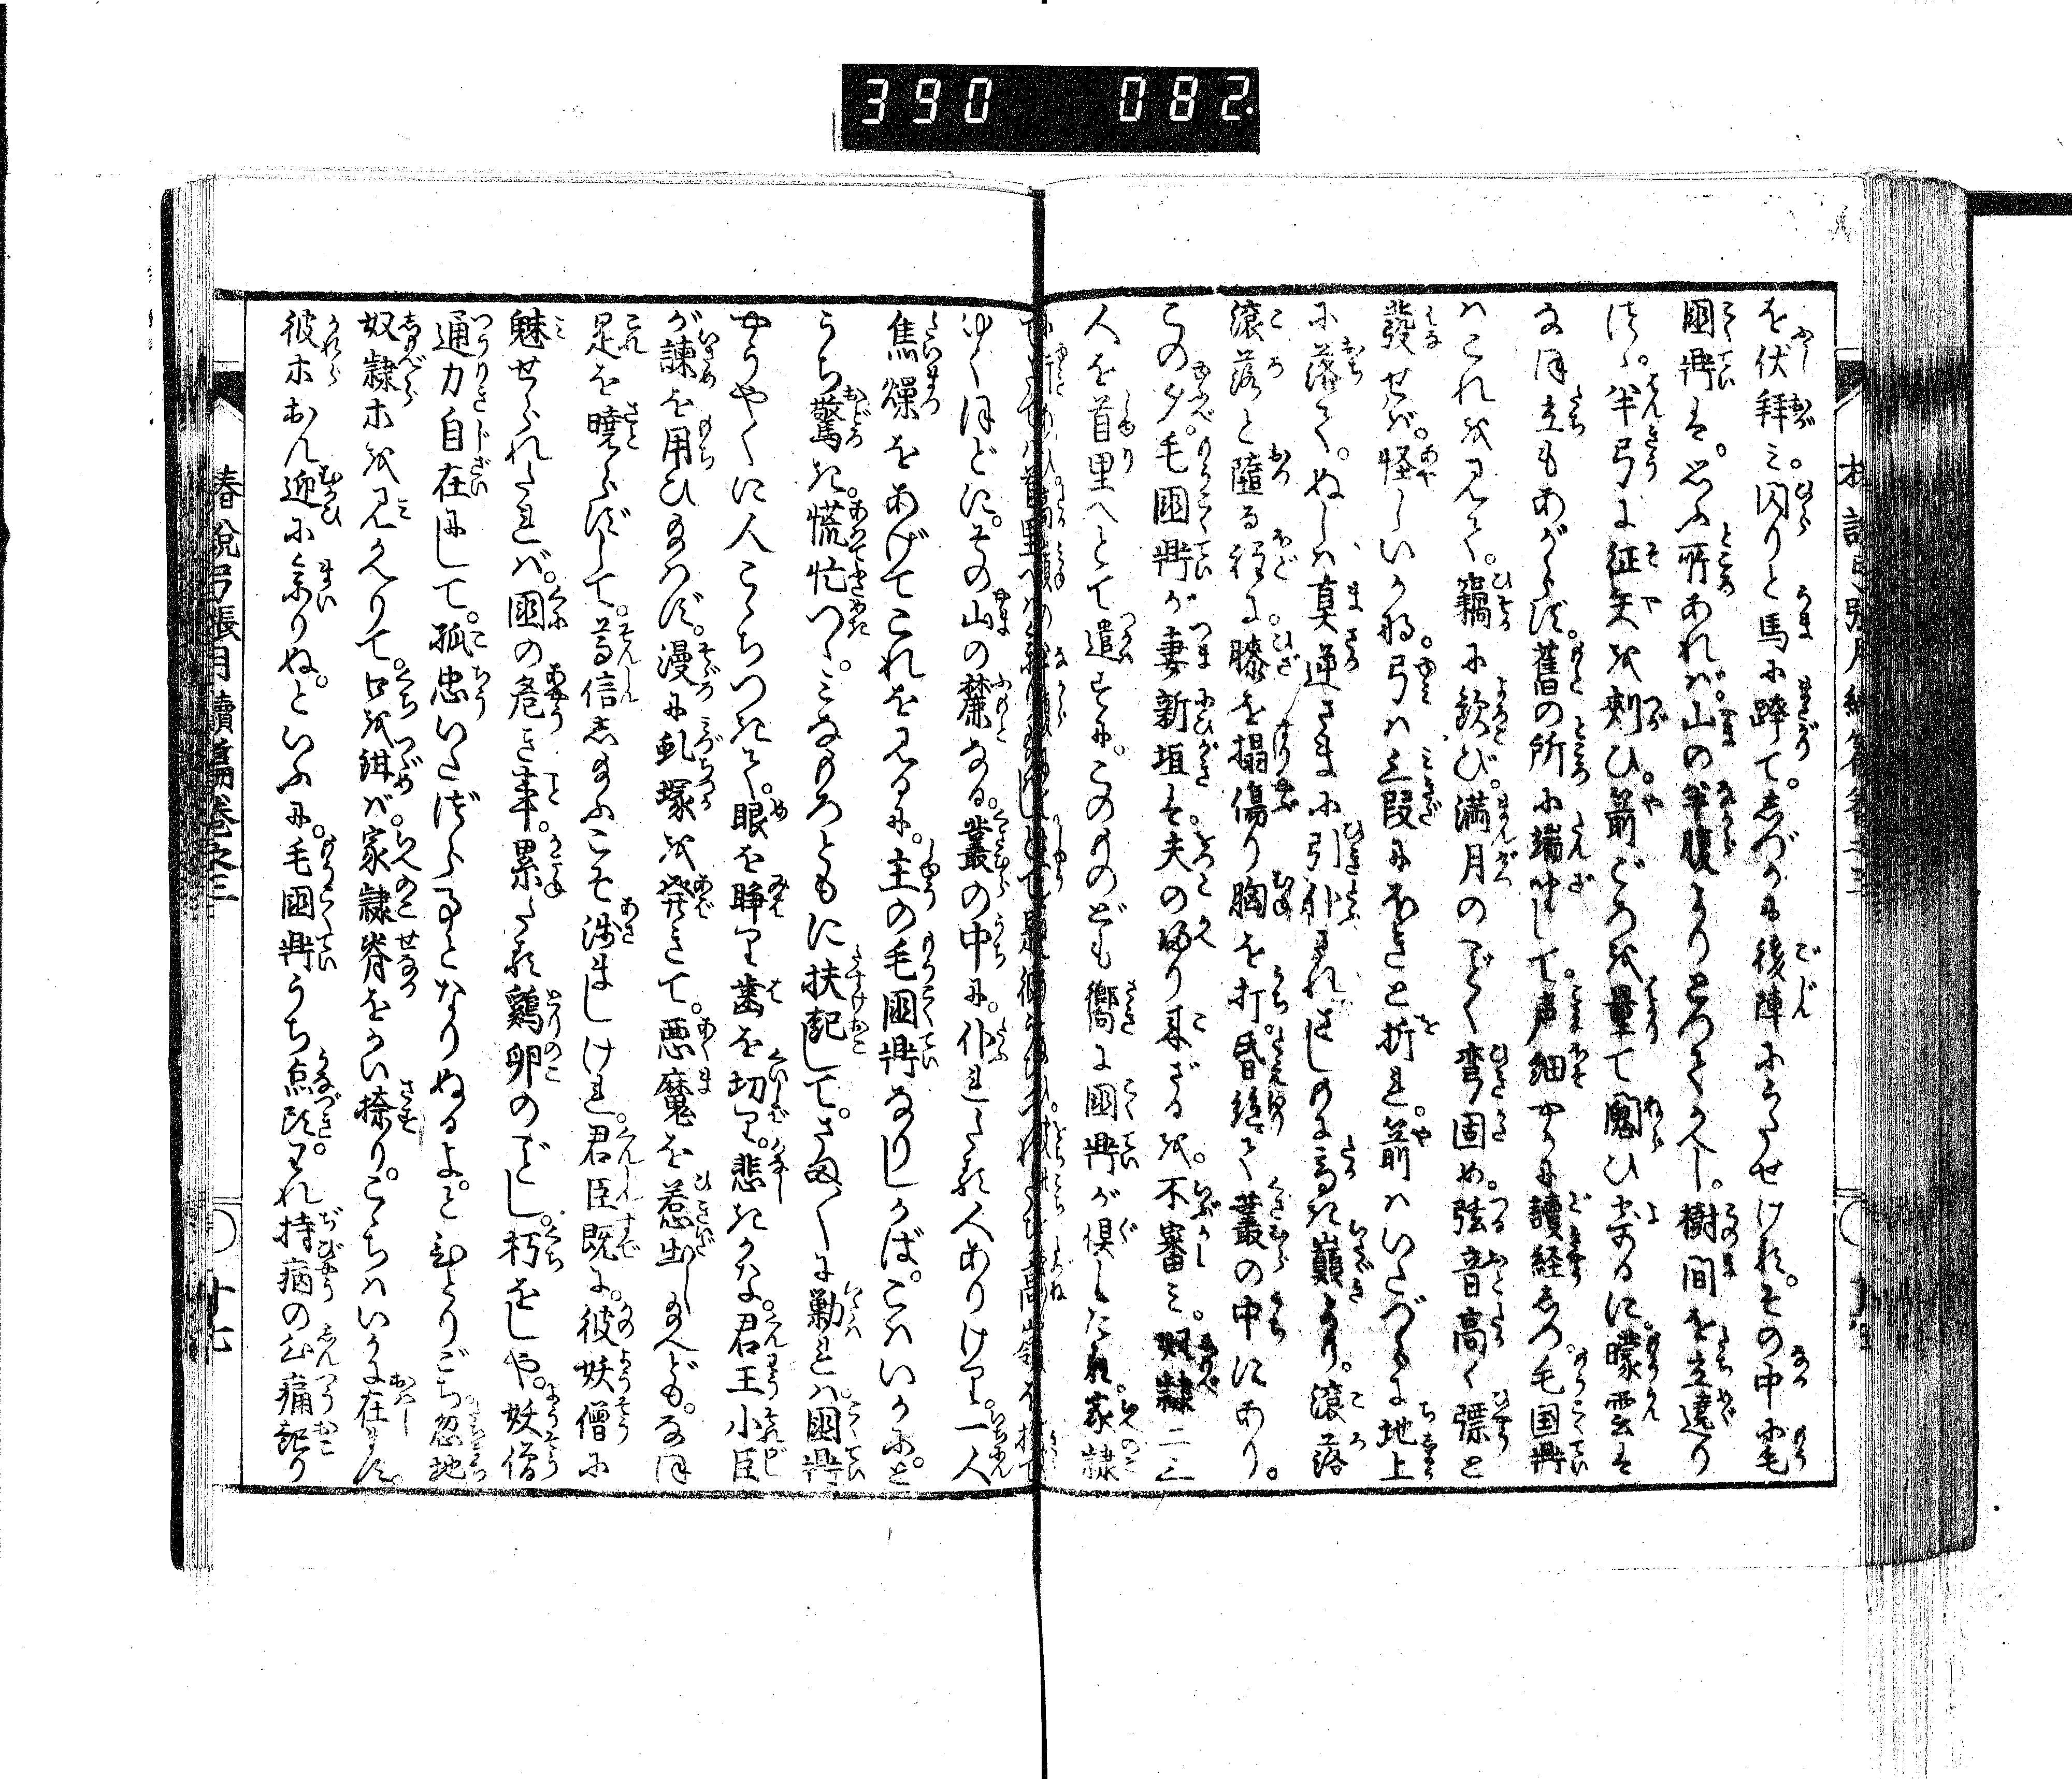 390 082
を伏拝み。閃りと馬に跨て。しづかに後陣にうたせけれ。その中に毛
國鼎は。思ふ所あれば。山の半腹よりとつてかへし。樹間を立遶り
つゝ。半弓に征矢を剡ひ。箭ごろを量て闚ひ寄るに。曚雲は
なほ立もあがらず。舊の所に端坐して。声細やかに讀経しつ。毛国鼎
はこれを見て。竊に歓び。満月のごとく弯固め。弦音高く彍と
發せば。怪しいかな。弓は三段にぶきと折れ。箭はいたづらに地上
に落て。ぬしは真逆さまに引仆され。さしのに高き巓より。滾落
滾落と墮る程に。膝を搨傷り胸を打。昏絶て叢の中にあり。
この夕。毛國鼎が妻新垣は。夫の皈り来ざるを。不審み。奴隷二三
人を首里へとて遣はすに。このものども嚮に國鼎が倶したる。家隷
ゆくほどに。その山の麓なる。叢の中に。仆れたる人ありけり。一人
焦燥をあげてこれを見るに。主の毛國鼎なりしかば。こはいかにと
うち驚き。慌忙つゝ。みなもろともに扶起して。さま〴〵に勦れば。國鼎
やうやくに人こゝちつきて。眼を睜り歯を切り。悲きかな。君王小臣
が諫を用ひ給はず。漫に虬塚を発きて。悪魔を惹出し給へども。なほ
是を曉らずして。尊信し給ふこそ浅ましけれ。君臣既に。彼妖僧に
魅せられたれば。國の危き事。累たる鶏卵のごとし。朽をしや。妖僧
通力自在にして。孤忠いたづら事となりぬるよ。とひとりごち。忽地
奴隷ホを見かへりて。口を鉗ば。家隷脊をかい捺り。こゝちはいかに在する。
彼ホおん迎に参りぬ。といふに。毛國鼎うち点頭。われ持病の心痛起り
椿説弓張月續篇巻之三
十七